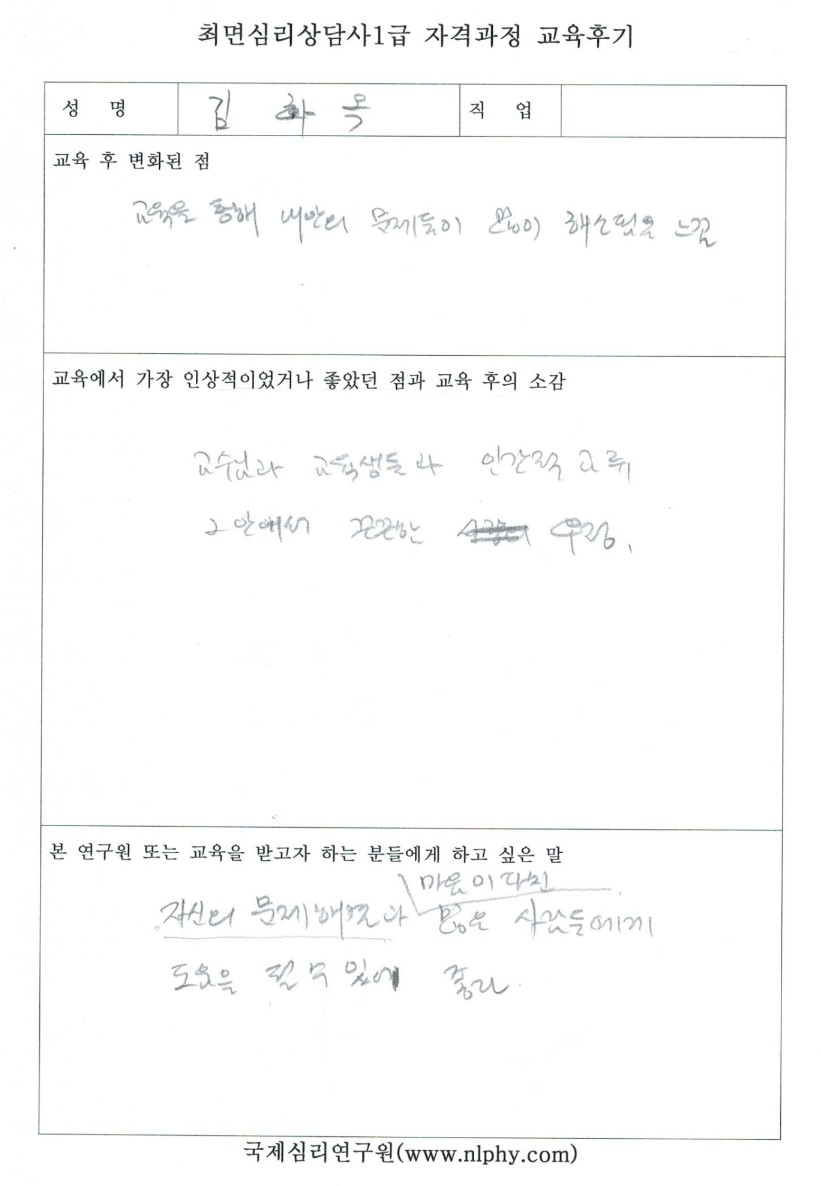 최면심리상담사1급 자격과정 교육후기
성 명 김 화 옥 직 업
교육 후 변화된 점
교육을 통해 내안의 문제들이 많이 해소됐음 느낌
교육에서 가장 인상적이었거나 좋았던 점과 교육 후의 소감
교수님과 교육생들과 인간적 교류,
그 안에서 끈끈한 우정.
본 연구원 또는 교육을 받고자 하는 분들에게 하고 싶은 말
마음이 다친
자신의 문제해결과 많은 사람들에게
도움을 될 수 있에 좋다.
국제심리연구원(www.nlphy.com)